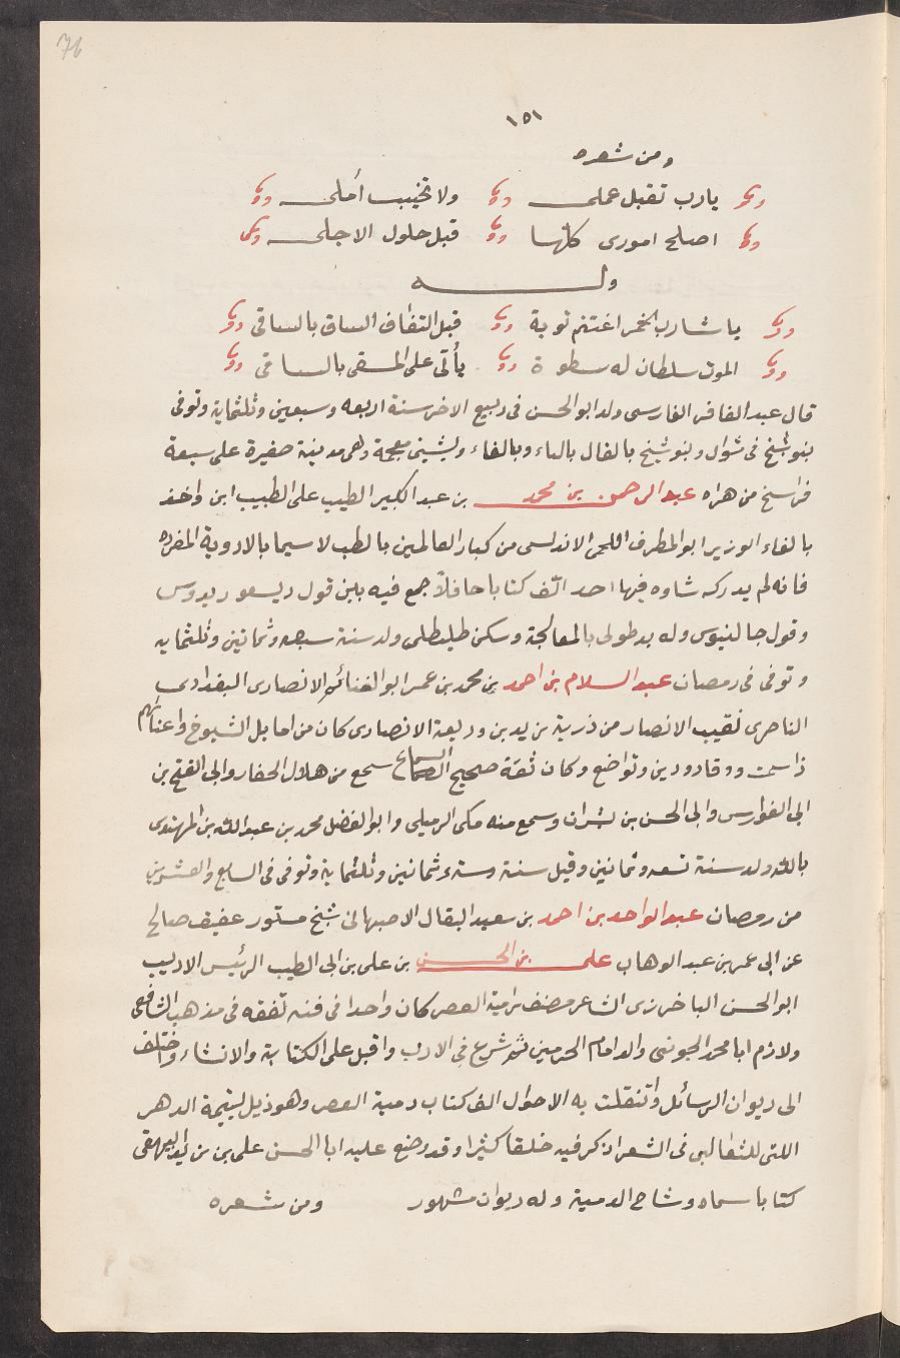 76
١٥١
ومن شعره
يارب تقبل عملى ولا تخيب أملى
اصلح امورى كلها قبل حلول الاجلى
وله
يا شارب الخمر اغتنم توبة قبل التفاف الساق بالساقى
الموت سلطان له سطوة يأتى على المسقى بالساقى
قال عبد الغافر الفارسى ولد ابو الحسن فى ربيع الاخر سنة اربعه وسبعين وثلثماية وتوفى
بنوشنخ فى شوال وبنوشنخ بالقال بالباء وبالفاء وبشينى معجمة وهى مدينة صغيرة على سبعة
فراسخ من هراه عبد الرحمن بن محمد بن عبد الكبير الطيب على الطبيب ابن واخد
بالفاء الوزير ابو المطرف اللخمى الاندلسى من كبار العالمين بالطب لاسيما بالادوية المفرده
فانه لم يدركه شاوه فيها احد الّف كتابا حافلاً جمع فيه بين قول ديسعوريدوس
وقول جالينوس وله يد طولى بالمعالجة وسكن طليطلى ولد سنة سبعه وثمانين وثلثمايه
وتوفى فى رمضان عبد السلام بن احمد بن محمد بن عمر ابو الغنائم الانصارى البغدادى
الناصرى نقيب الانصار من ذرية زيد بن وديعة الانصارى كان من امايل الشيوخ واعيانهم
ذا سمت ووقار ودين وتواضع وكان ثقة صحيح السماع سمع من هلال الحفار وابى الفتح بن
ابى الفوارس وابى الحسن بن بشران وسمع منه مكى الرميلى وابو الفضل محمد بن عبد الله بن المهتدى
بالله ولد سنة تسعه وثمانين وقيل سنة وستة وثمانين وثلثماية وتوفى فى السابع والعشرين
من رمضان عبد الواحد بن احمد بن سعيد البقال الاصبهانى شيخ مستور عفيف صالح
عن ابى عمر بن عبد الوهاب على بن الحسن بن على بن ابى الطيب الرئيس الاديب
ابو الحسن الباخرزى الشاعر مصنف دمية العصر كان واحدا فى فنه تفقه فى مذهب الشافعى
ولازم ابا محمد الجوينى والد امام الحرمين ثم شرع فى الادب واقبل على الكتابة والانشاء واختلف
الى ديوان الرسائل وانتقلت به الاحوال الف كتاب دمية العصر وهو ذيل يتيمة الدهر
اللتى للثعالبى فى الشعر اذكر فيه خلقا كثيرا وقد وضع عليه ابا الحسن على بن زيد البيهقى
كتابا سماه وشاح الدمية وله ديوان مشهور ومن شعره